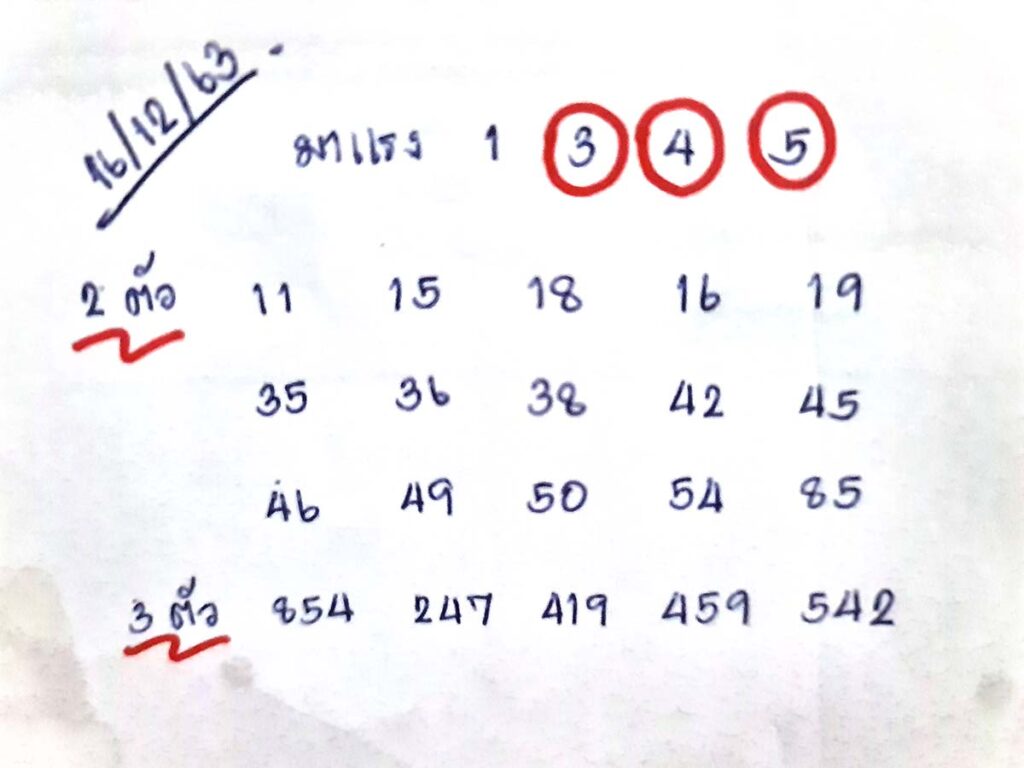 16/12/63
มาแรง 1 3 4 5
2 ตัว 11 15 18 16 19
35 36 38 42 45
46 49 50 54 85
3 ตัว 854 247 419 459 542